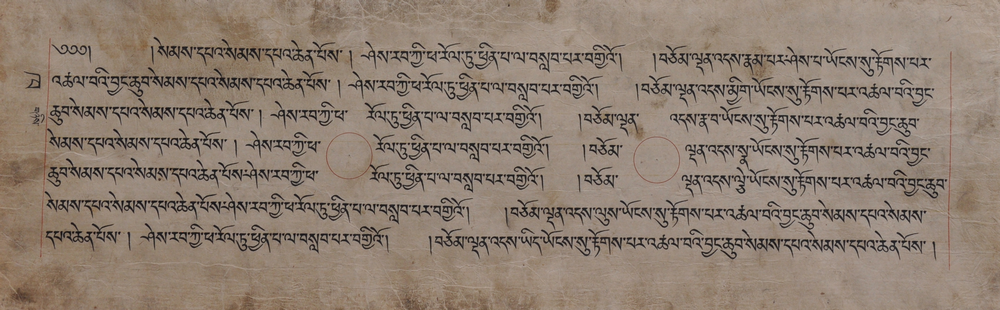 ༄༅༅། །སེམས་དཔའ་སེམས་དཔའ་ཆེན་པོས་ །ཤེས་རབ་ཀྱི་ཕ་རོལ་ཏུ་ཕྱིན་པ་ལ་བསླབ་པར་བགྱིའོ། །བཅོམ་ལྡན་འདས་རྣམ་པར་ཤེས་པ་ཡོངས་སུ་རྟོགས་པར་
འཚལ་བའི་བྱང་ཆུབ་སེམས་དཔའ་སེམས་དཔའ་ཆེན་པོས་ །ཤེས་རབ་ཀྱི་ཕ་རོལ་ཏུ་ཕྱིན་པ་ལ་བསླབ་པར་བགྱིའོ། །བཅོམ་ལྡན་འདས་མྱིག་ཡོངས་སུ་རྟོགས་པར་འཚལ་བའི་བྱང་
ཆུབ་སེམས་དཔའ་སེམས་དཔའ་ཆེན་པོས་ །ཤེས་རབ་ཀྱི་ཕ་ རོལ་ཏུ་ཕྱིན་པ་ལ་བསླབ་པར་བགྱིའོ། །བཅོམ་ལྡན་ འདས་རྣ་བ་ཡོངས་སུ་རྟོགས་པར་འཚལ་བའི་བྱང་ཆུབ་
སེམས་དཔའ་སེམས་དཔའ་ཆེན་པོས་ །ཤེས་རབ་ཀྱི་ཕ་ རོལ་ཏུ་ཕྱིན་པ་ལ་བསླབ་པར་བགྱིའོ། །བཅོམ་ ལྡན་འདས་སྣ་ཡོངས་སུ་རྟོགས་པར་འཚལ་བའི་བྱང་
ཆུབ་སེམས་དཔའ་སེམས་དཔའ་ཆེན་པོས་ཤེས་རབ་ཀྱི་ཕ་ རོལ་ཏུ་ཕྱིན་པ་ལ་བསླབ་པར་བགྱིའོ། །བཅོམ་ ལྡན་འདས་ལྕེ་ཡོངས་སུ་རྟོགས་པར་འཚལ་བའི་བྱང་ཆུབ་
སེམས་དཔའ་སེམས་དཔའ་ཆེན་པོས་ཤེས་རབ་ཀྱི་ཕ་རོལ་ཏུ་ཕྱིན་པ་ལ་བསླབ་པར་བགྱིའོ། །བཅོམ་ལྡན་འདས་ལུས་ཡོངས་སུ་རྟོགས་པར་འཚལ་བའི་བྱང་ཆུབ་སེམས་དཔའ་སེམས་
དཔའ་ཆེན་པོས་ །ཤེས་རབ་ཀྱི་ཕ་རོལ་ཏུ་ཕྱིན་པ་ལ་བསླབ་པར་བགྱིའོ། །བཅོམ་ལྡན་འདས་ཡིད་ཡོངས་སུ་རྟོགས་པར་འཚལ་བའི་བྱང་ཆུབ་སེམས་དཔའ་སེམས་དཔའ་ཆེན་པོས་ །